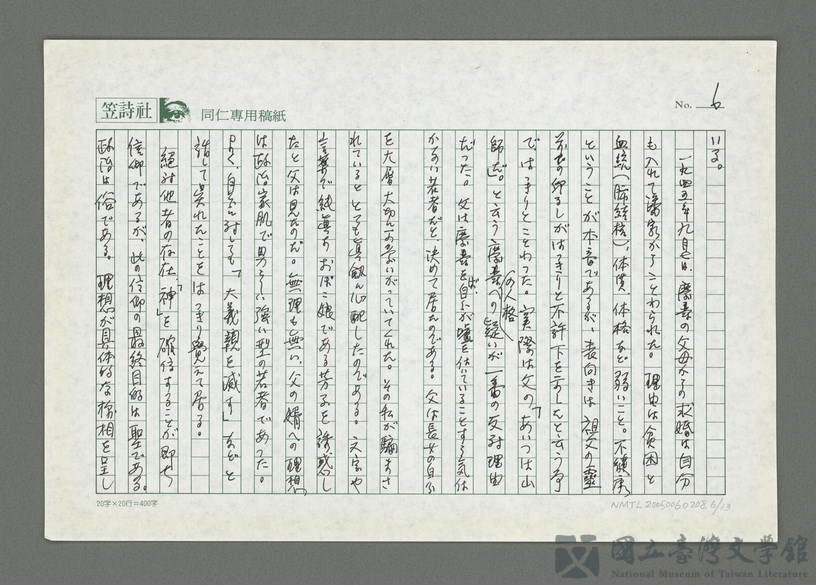 笠詩社
同仁專用稿紙
No. 6
いる。
一九四五年九月七日、 の父母からの求婚は自分
も入れて 家からことわられた。理由は貧困と
血統（肺結核）、体質、体格など弱いこと。不健康
ということが本音であるが、表向きは祖父の靈
の印しがはっきりと不許下を示したと云う事
ではっきりとことわった。実際は父の「あいつは山
師だ。」と云う への人格の疑いが一番の反対理由
だった。父は が自分が嘘を伝っていることすら気付
かない若者だと、決めて居るのである。父は長女の自分
を大層大切に て くれた。その私が騙まさ
れているととても真劍に心配したのである。文字や
言葉で純真なおぼこ娘である芳子を誘惑し
たと父は見たのだ。無理もと無い、父の婿への理想
は政治家肌で男らしい強い型の若者であった。
よく、自分に対しても「大義親を滅す」などと
話して呉れたことをはっきり覺えて居る。
絶対他者の存在「神」を確信することが即ち
信仰であるが、此の信仰の最終目的は聖である。
政治は俗である。理想が具体的な様相を呈し
20字×20行=400字
NMTL20050060208 6/13
國立臺灣文學館
National Museum of Taiwan Literature